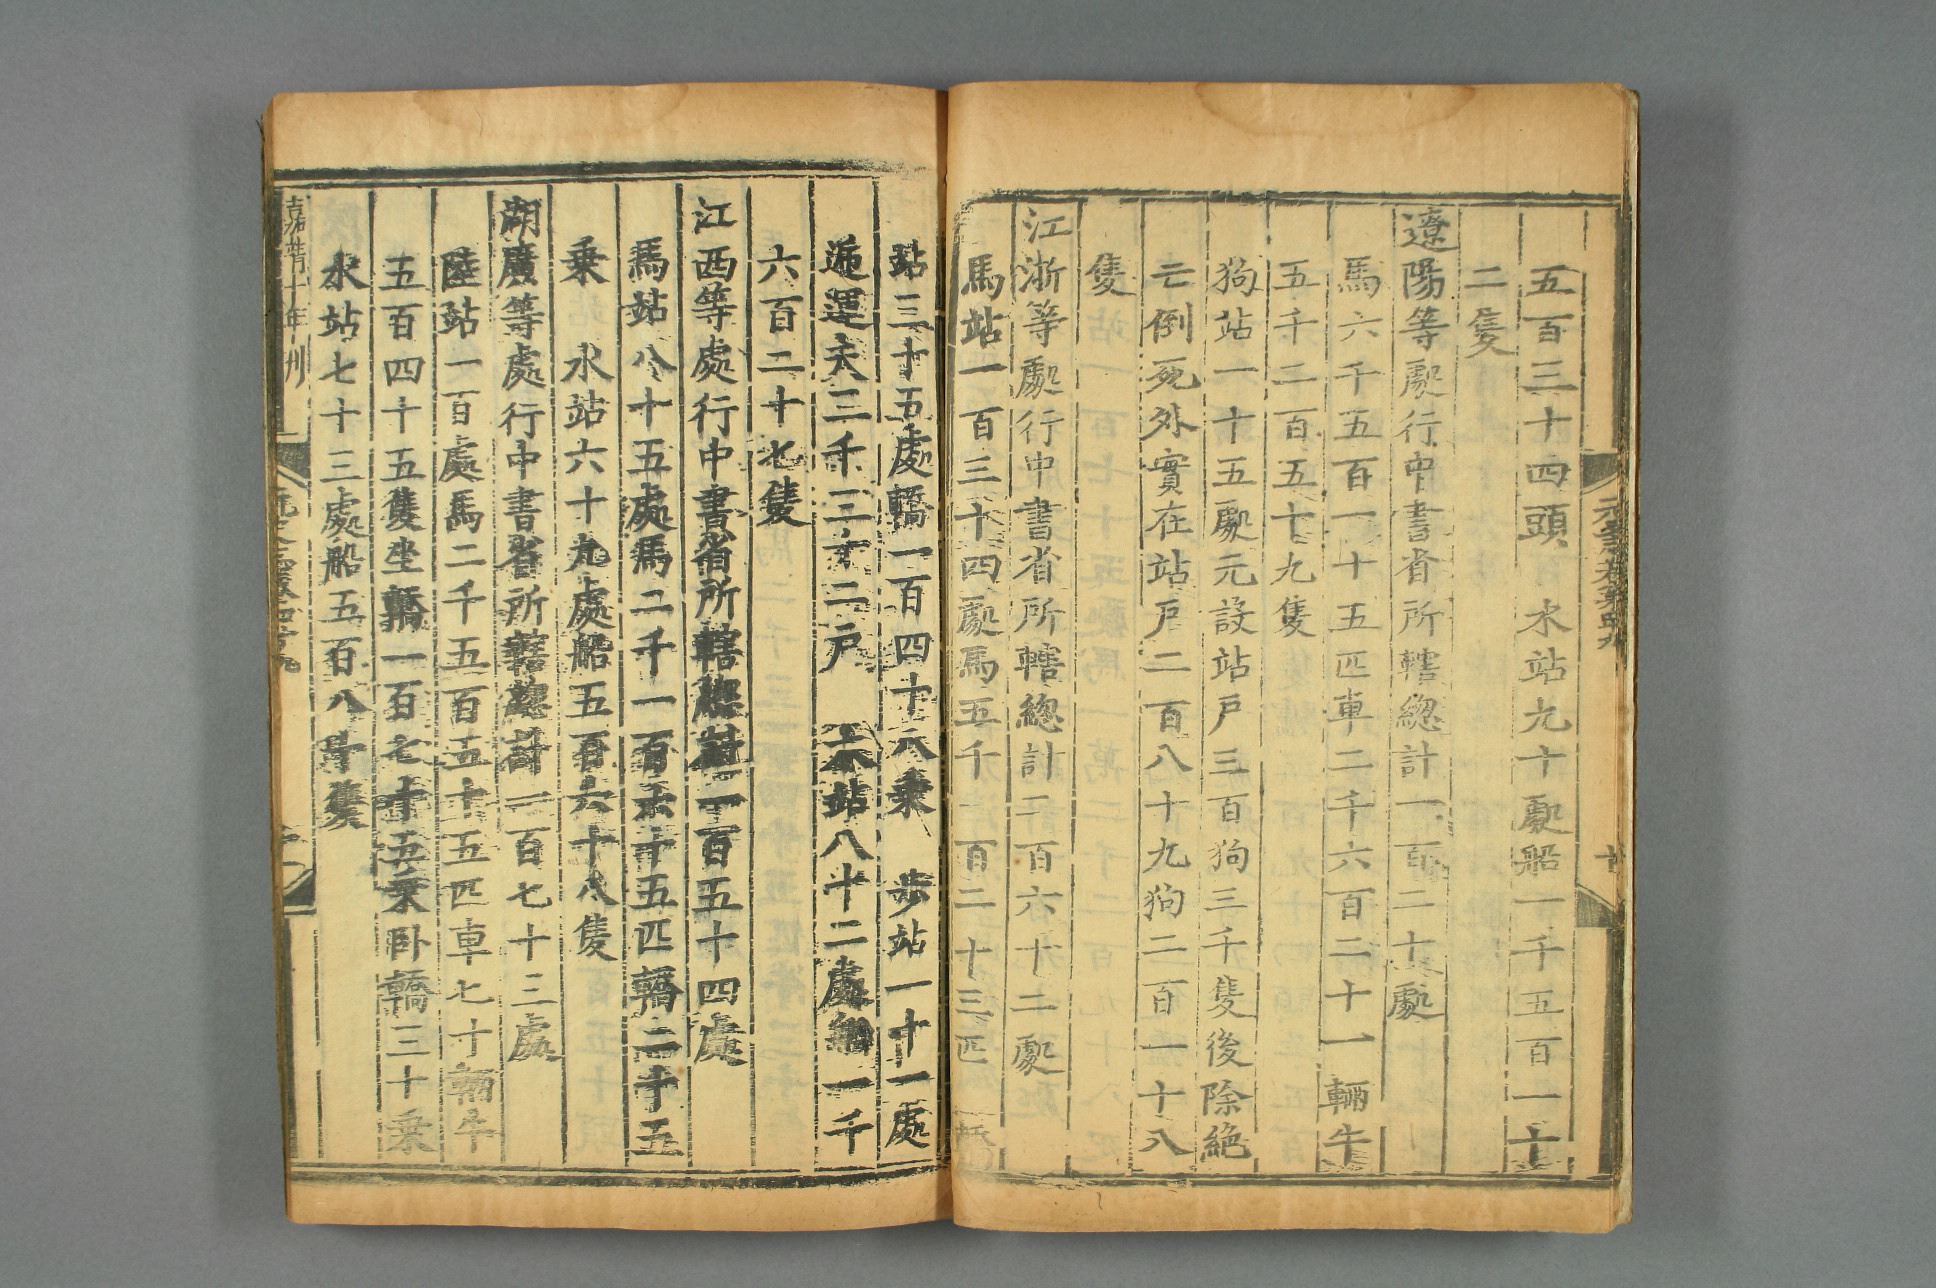 五百三十四頭 水站九十處船一千五百一十
二隻
遼陽等處行中書省所轄總計一百二十處
馬六千五百一十五匹車二千六百二十一輛牛
五千二百五十九隻
狗站一十五處元設站户三百狗三千隻後除絶
亡倒死外實在站户二百八十九狗二百一十八
隻
江浙等處行中書省所轄總計二百六十二處
馬站一百三十四處馬五千一百二十三匹 轎
站三十五處轎一百四十八乘 步站一十一處
遞運夫三千三十二户 水站八十二處船一千
六百二十七隻
江西等處行中書省所轄總計一百五十四處
馬站八十五處馬二千一百六十五匹轎二十五
乘 水站六十九處船五百六十八隻
湖廣等處行中書省所轄總計一百七十三處
陸站一百處馬二千五百五十五匹車七十輛牛
五百四十五隻坐轎一百七十五乘卧轎三十乘
水站七十三處船五百八十隻
嘉靖十年刊